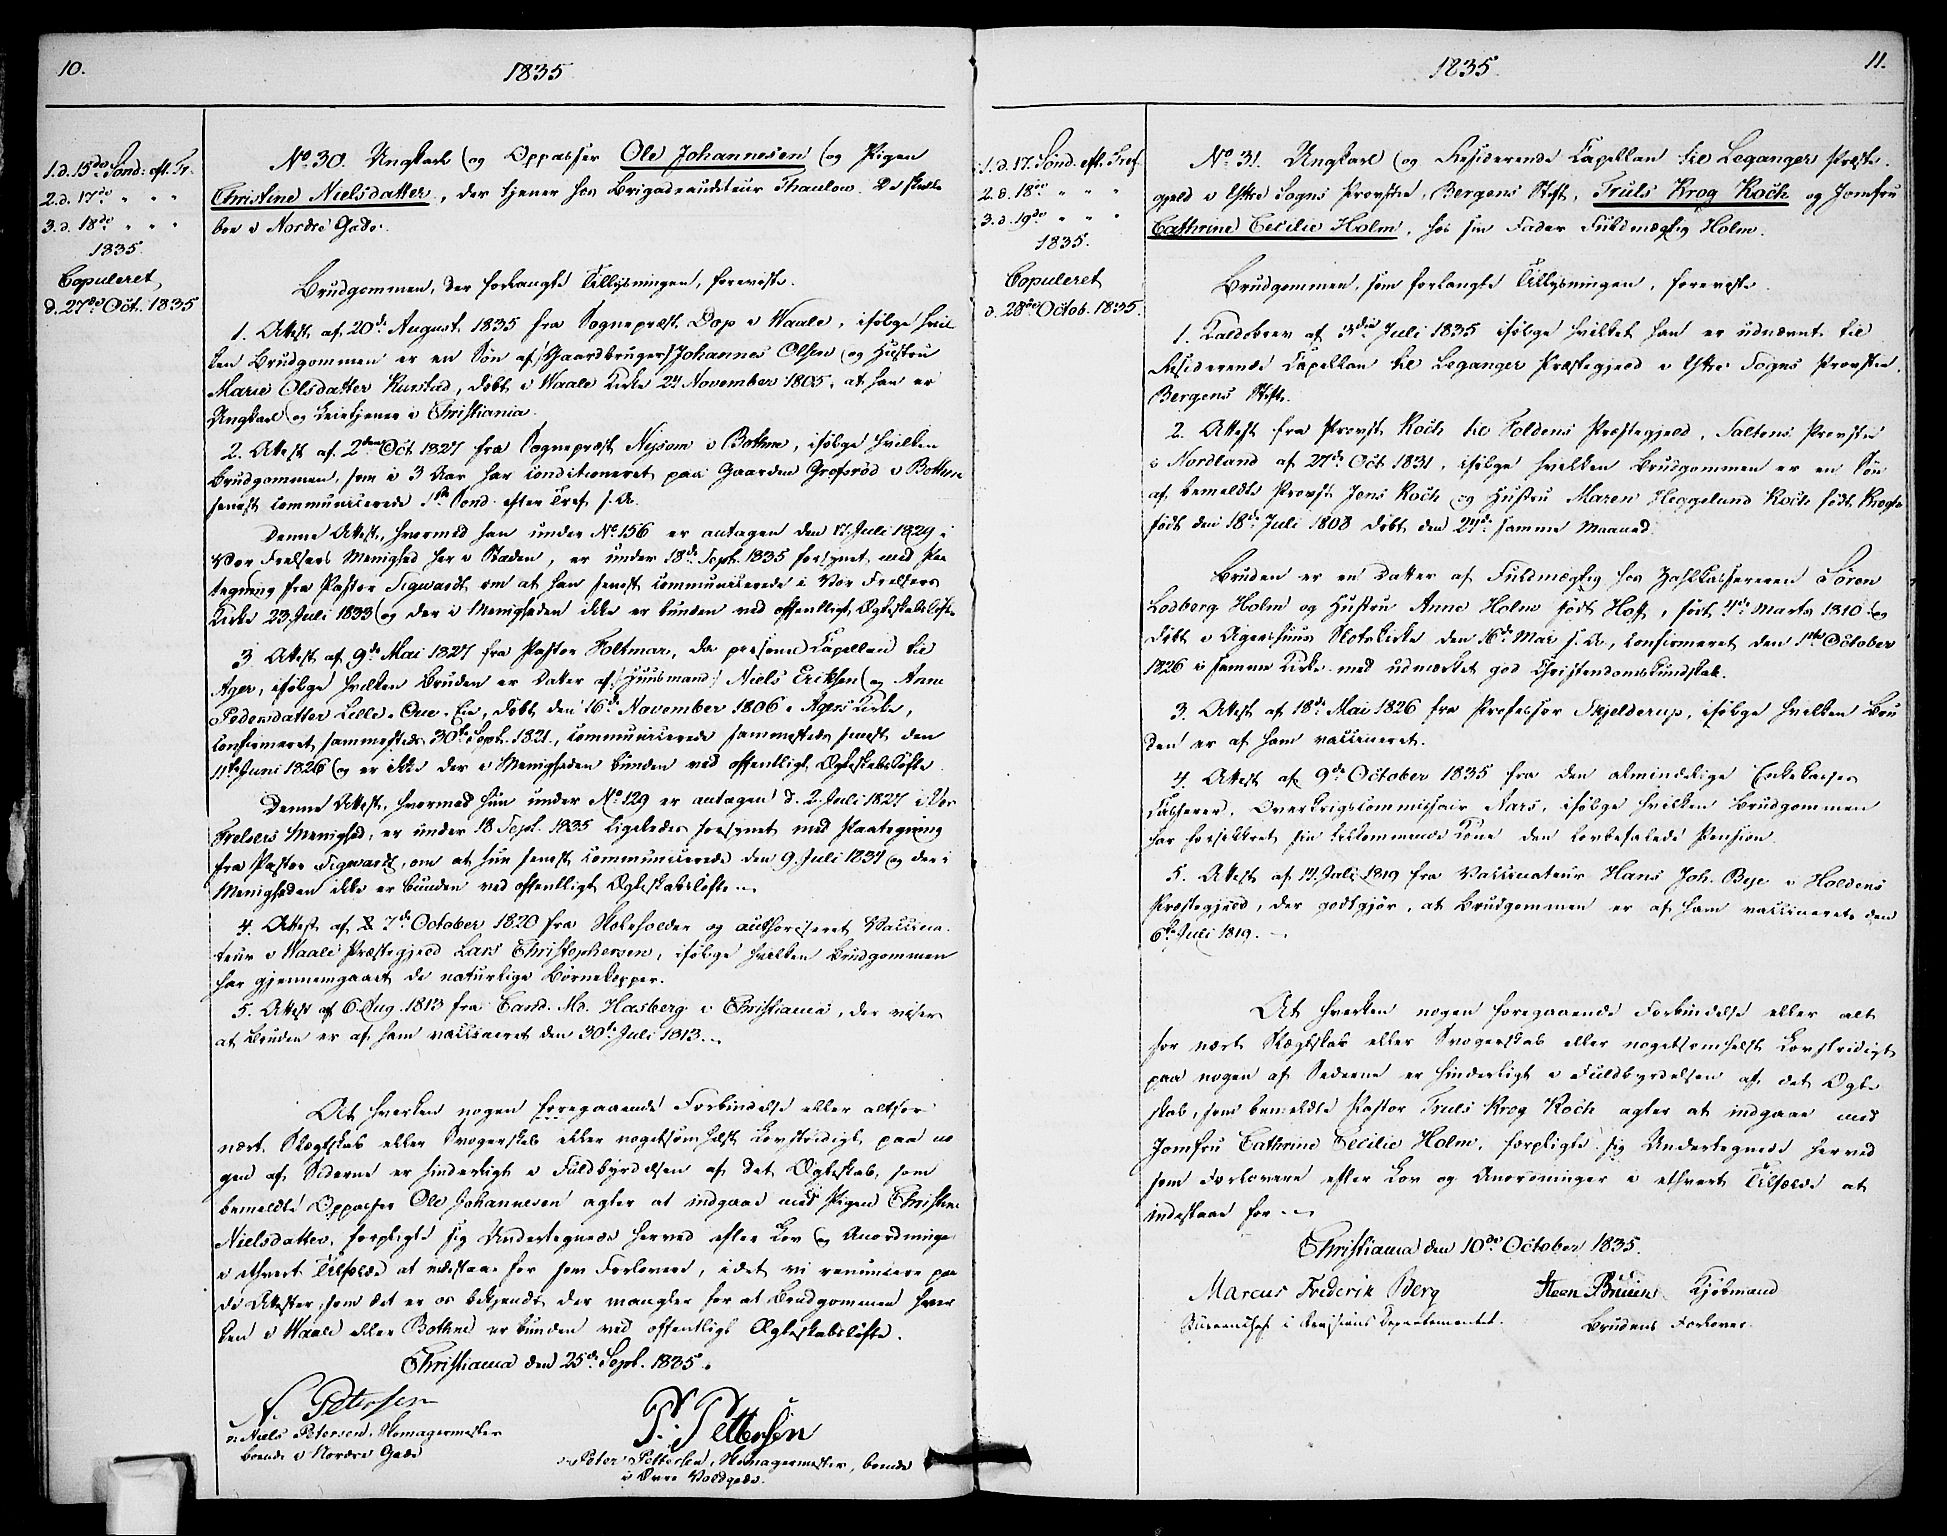 10.
1835
1.d. 15de Sønd: eft. Tr.
2.d. 17de " " "
3.d. 18de " " "
1835.
Copuleret
d. 27de Oct. 1835
No 30. Ungkarl og Oppasser Ole Johannesen og Pigen
Christine Nielsdatter, der tjener hos Brigadeauditeur Thaulow. De skulle
boe i Nordre Gade.
Brudgommen, der forlangte Tillysningen, foreviste.
1. Attest af 20de August 1835 fra Sognepræst Dop i Waale, ifølge hvil
ken Brudgommen er en Søn af /Gaardbruger/ Johannes Olsen og Hustru
Marie Olsdatter Kurstad, døbt i Waale Kirke 24 November 1805, at han er
Ungkarl og Leietjener i Christiania.
2. Attest af 2den Oct 1827 fra Sognepræst Nysom i Bothne, ifølge hvilken
Brudgommen, som i 3 Aar har conditioneret paa Gaarden Grefsrød i Bothne
senest communicerede 1ste Sønd. efter Tref. s. A.
Denne Attest, hvormed han under No 156 er antagen den 17 Juli 1829 i
Vor Frelsers Menighed her i Staden, er under 18de Sept. 1835 forsynet med Paa
tegning fra Pastor Sigwardt om at han senest communicerede i Vor Frelsers
Kirke 23 Juli 1833 og der i Menigheden ikke er bunden ved offentligt Ægteskabsløfte
3. Attest af 9de Mai 1827 fra Pastor Foltmar, da personel Capellan til
Ager, ifølge hvilken Bruden er Datter af /:Huusmand:/ Niels Eriksen og Anne
Pedersdatter Lille-Oue-Eie, døbt den 16de November 1806 i Agers Kirke,
confirmeret sammesteds 30te Sept. 1821, communicerede sammesteds senest den
11te Juni 1826 og er ikke der i Menigheden bunden ved offentligt Ægteskabsløfte.
Denne Attest, hvormed hun under No 129 er antagen d. 2. Juli 1827 i Vor
Frelsers Menighed, er under 18 Sept. 1835 ligeledes forsynet med Paategning
fra Pastor Sigwardt, om at hun senest communicerede den 9. Juli 1834 og der i
Menigheden ikke er bunden ved offentligt Ægteskabsløfte.
4. Attest af 7de October 1820 fra Skoleholder og authoriseret Vaccina-
teur i Waale Præstegjeld Lars Christophersen, ifølge hvilken Brudgommen
har gjennemgaaet de naturlige Børnekopper.
5. Attest af 6 Aug. 1813 fra Cand. Md. Hasberg i Christiania, der viser
at Bruden er af ham vaccineret den 30te Juli 1813.
At hverken nogen foregaaende Forbindelse eller altfor
nært Slægtskab eller Svogerskab eller nogetsomhelst Lovstridigt paa no
gen af Siderne er hinderligt i Fuldbyrdelsen af det Ægteskab, som
bemeldte Oppasser Ole Johannesen agter at indgaae med Pigen Christine
Nielsdatter, forpligte sig Undertegnede herved efter Lov og Anordninger
i ethvert Tilfælde at indestaae for som Forlovere, idet vi renuncere paa
de Attester, som det er os bekjendt der mangler for at Brudgommen hver
ken i Waale eller Bothne er bunden ved offentligt Ægteskabsløfte.
Christiania den 25de Sept. 1835.
N. Petersen
Niels Petersen, Skomagermester
boende i Nordre Gade
P. Pettersen
Peter Pettersen, Skomagermester, boende
i Øvre Voldgade.
1835.
11.
1.d. 17. Sønd. eft. Tref.
2.d. 18de " " "
3.d. 19de " " "
1835.
Copuleret
d. 28de Octob. 1835.
No 31. Ungkarl og Residerende Capellan til Leganger Præste-
gjeld i Ytre Sogns Provstie, Bergens Stift, Truls Krog Koch og Jomfru
Cathrine Cecilie Holm, hos sin Fader Fuldmægtig Holm.
Brudgommen, som forlangte Tillysningen, foreviste.
1. Kaldsbrev af Juli 1835 ifølge hvilket han er udnævnt til
Residerende Capellan til Leganger Præstegjeld i Ytre Sogns Provstie,
Bergens Stift.
2. Attest fra Provst Koch til Foldens Præstegjeld, Saltens Provstie
i Nordland af 27de Oct 1831, ifølge hvilken Brudgommen er en Søn
af bemeldte Provst Jens Koch og Hustru Maren Heggelund Koch født Krogh
født den 18de Juli 1808 døbt den 24de samme Maaned.
Bruden er en Datter af Fuldmægtig hos Zahlkassereren Søren
Lodberg Holm og Hustru Anne Holm født Hoff, født 4de Marts 1810 og
døbt i Agershuus Slotskirke den 16de Mai s. A., confirmeret den 1ste October
1826 i samme Kirke med udmærket god Christendomskundskab.
3. Attest af 18de Mai 1826 fra Professor Skjelderup, ifølge hvilken Bru
den er af ham vaccineret.
4. Attest af 9de October 1835 fra den almindelige Enkekasses
Casserer, Overkrigscommissair Aars, ifølge hvilken Brudgommen
har forsikkret sin tilkommende Kone den lovbefalede Pension.
5. Attest af 14. Juli 1819 fra Vaccinateur Hans Joh. Bye i Foldens
Præstegjeld, der godtgjør, at Brudgommen er af ham vaccineret den
6te Juli 1819.
At hverken nogen foregaaende Forbindelse eller alt
for nært Slægtskab eller Svogerskab eller nogetsomhelst Lovstridigt
paa nogen af Siderne er hinderligt i Fuldbyrdelsen af det Ægte
skab, som bemeldte Pastor Truls Krog Koch agter at indgaae med
Jomfru Cathrine Cecilie Holm, forpligte sig Undertegnede herved
som Forlovere efter Lov og Anordninger i ethvert Tilfælde at
indestaae for
Christiania den 10de October 1835.
Marcus Frederik Berg
Bureauchef i Revisions Departementet.
Steen Bruun Kjøbmand
Brudens Forlover.